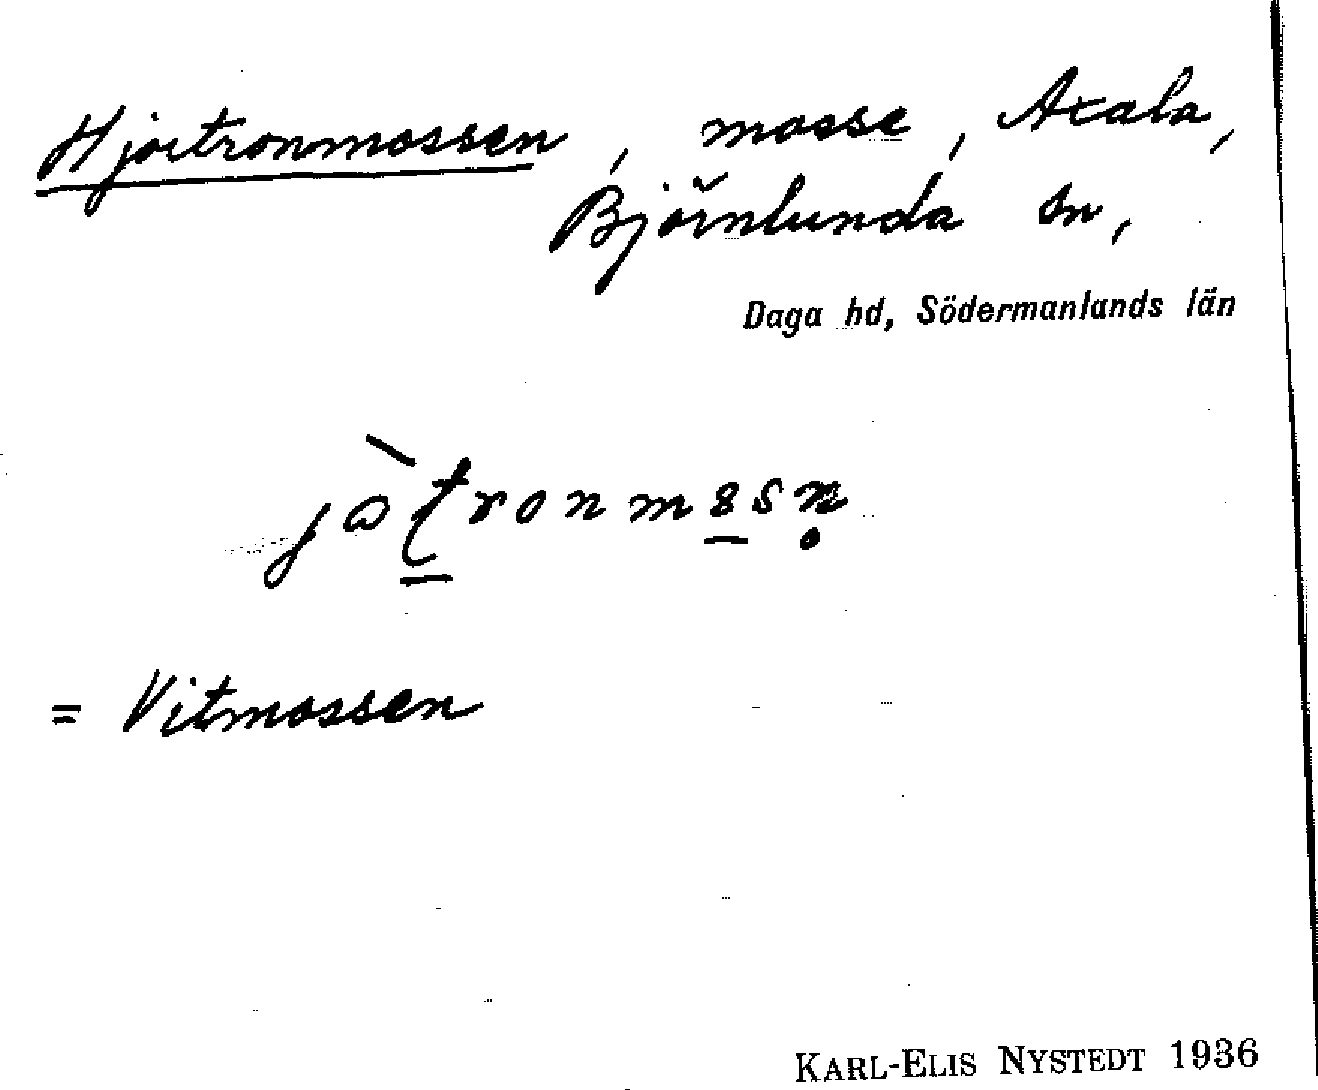 Hjortronmossen, mosse, Axala,
Björnlunda sn,
Daga hd, Södermanlands län
= Vitmossen
KARL-ELIS NYSTEDT 1936